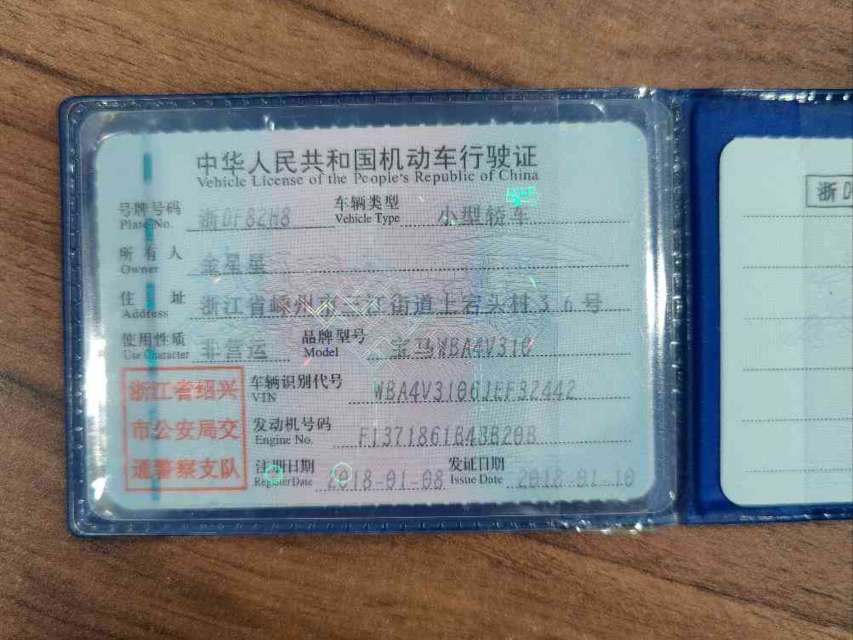 中华人民共和国机动车行驶证
Vehicle License of the People's Republic of China
号牌号码 浙DF82H8 车辆类型 小型轿车
Plate No. Vehicle Type
所有人 金星星
Owner
住址 浙江省嵊州市三江街道上岩头村36号
Address
使用性质 非营运 品牌型号 宝马WBA4V310
Use Character Model
浙江省绍兴
市公安局交
通警察支队
车辆识别代号 WBA4V3106JEF32442
VIN
发动机号码 F1371861B43B20B
Engine No.
注册日期 2018-01-08 发证日期 2018-01-10
Register Date Issue Date
浙D